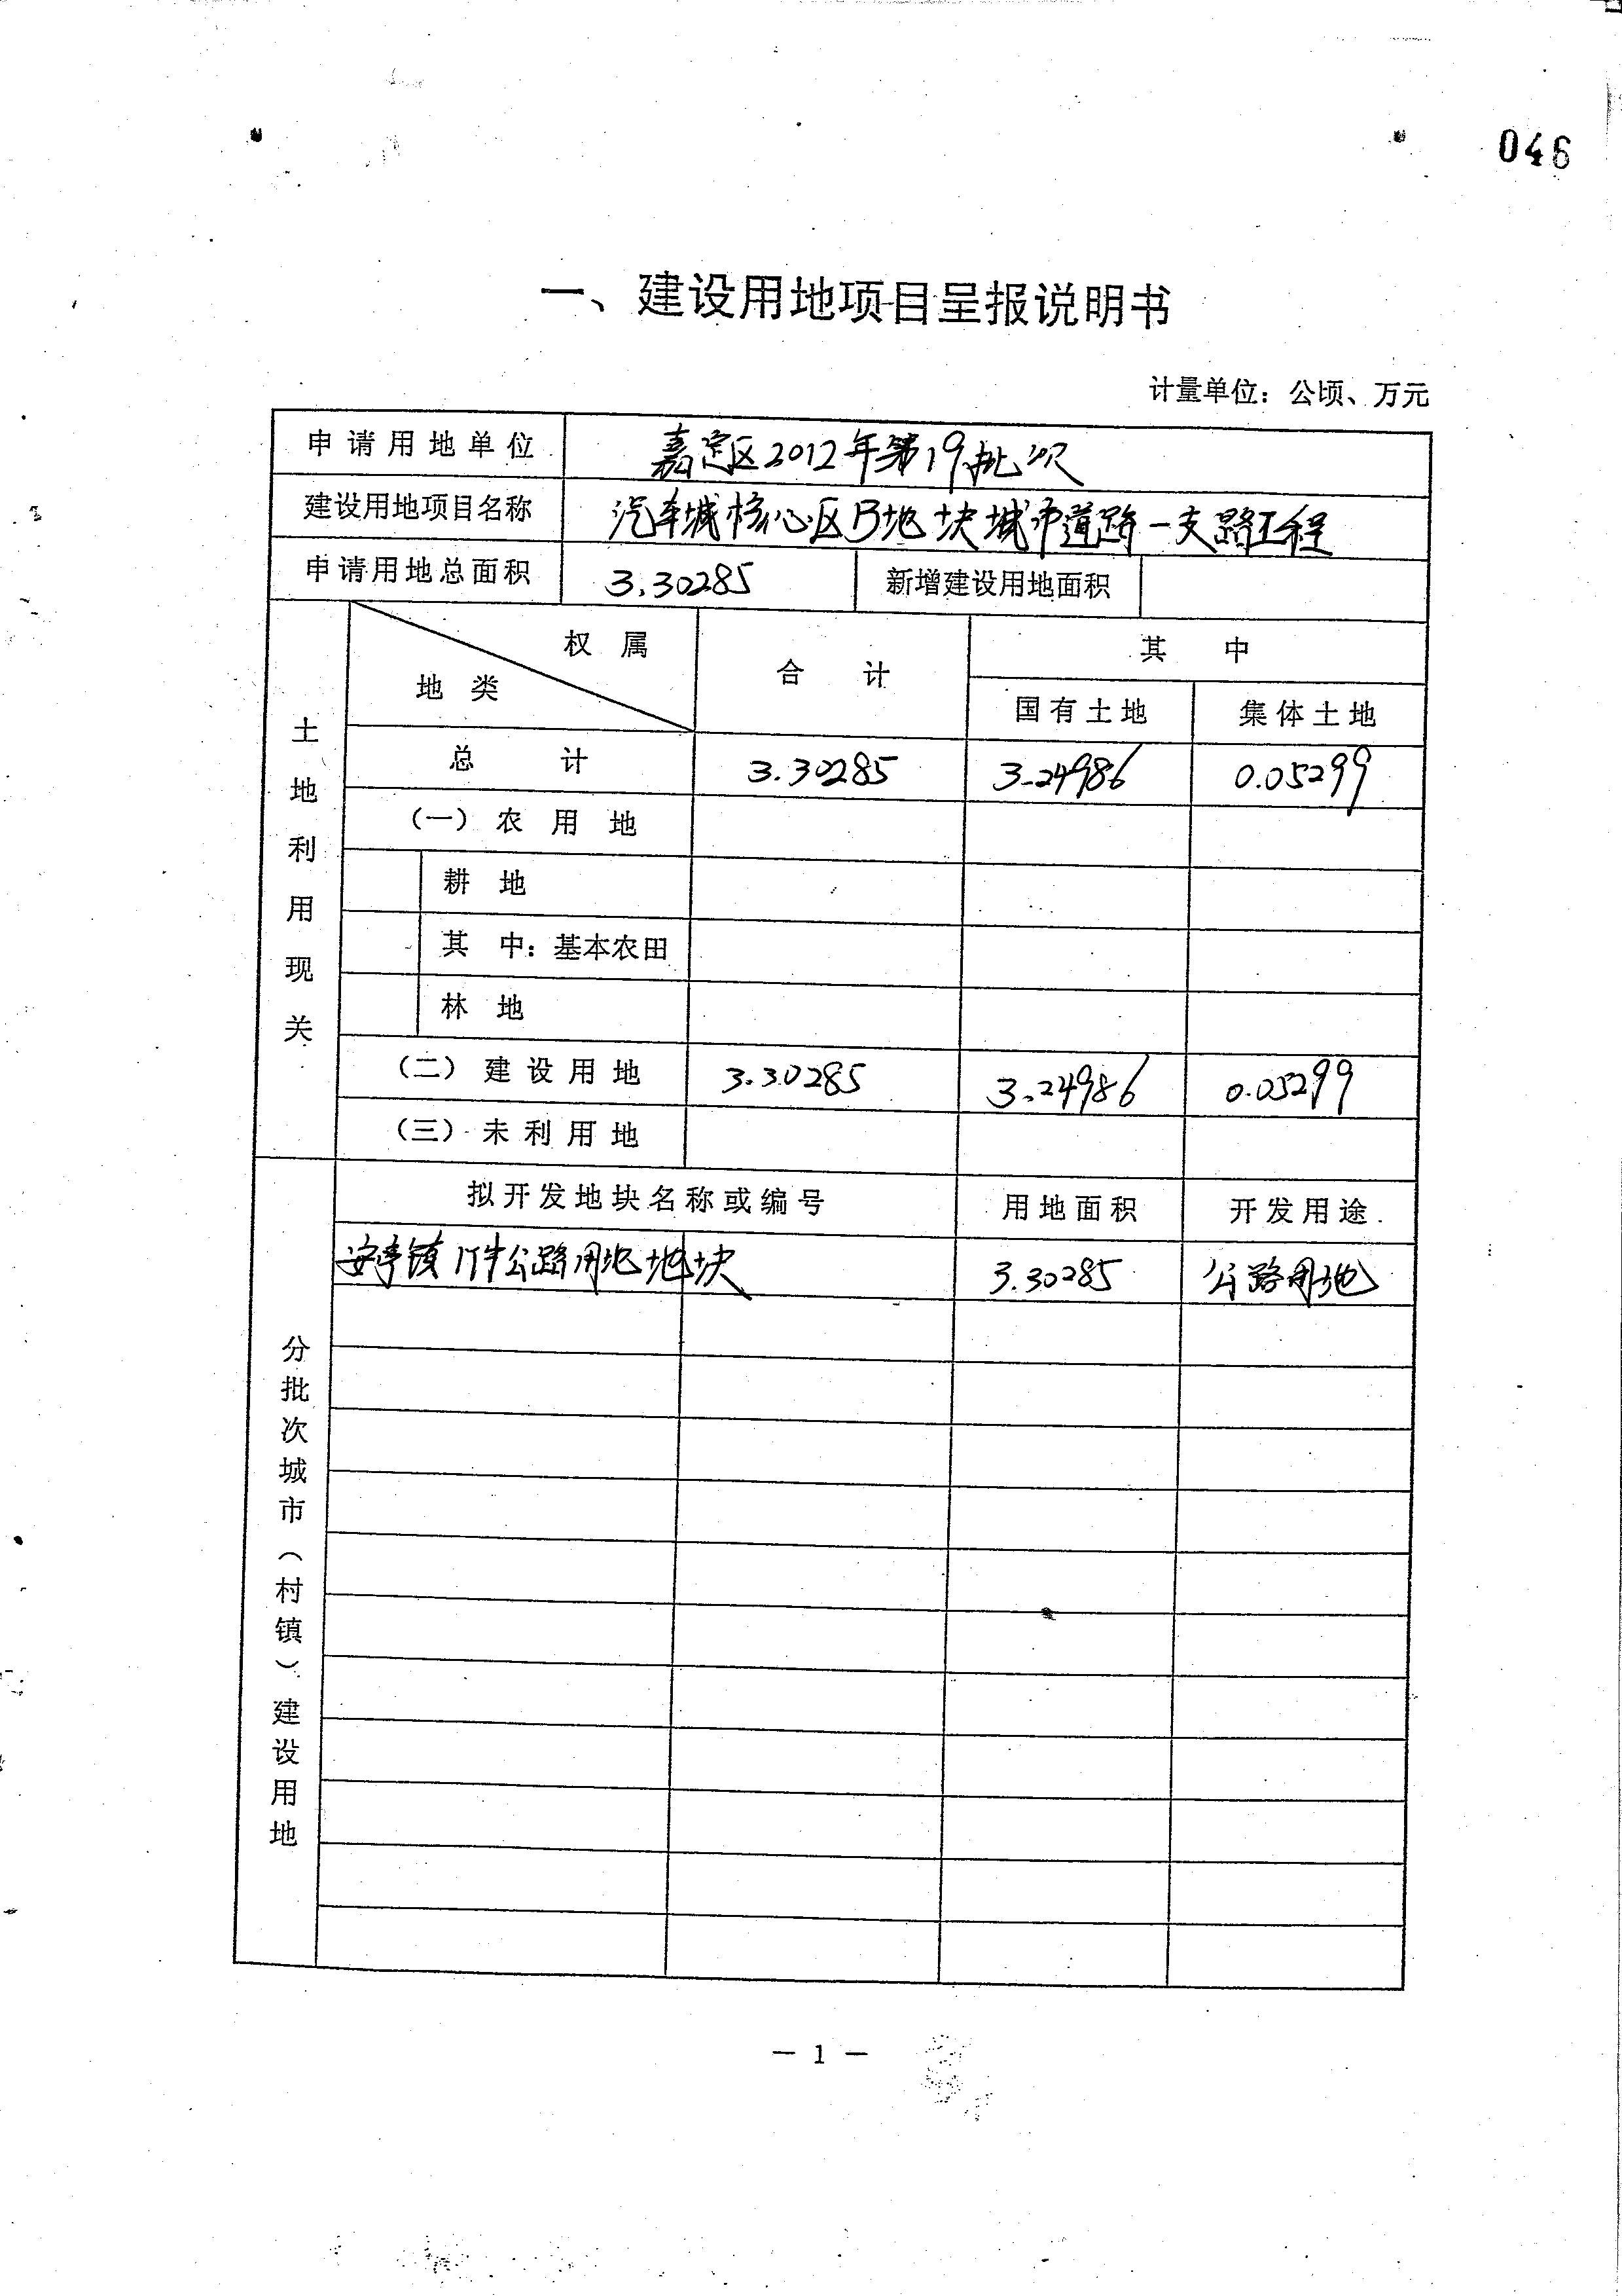 046
一、建设用地项目呈报说明书
计量单位：公顷、万元
申请用地单位 嘉定区2012年第19批次
建设用地项目名称 汽车城核心区B地块城市道路一支路工程
申请用地总面积 3.30285 新增建设用地面积
土地利用现关
权属 地类 合计 其中
国有土地 集体土地
总计 3.30285 3.24986 0.05299
（一）农用地
耕地
其中：基本农田
林地
（二）建设用地 3.30285 3.24986 0.05299
（三）未利用地
分批次城市（村镇）建设用地
拟开发地块名称或编号 用地面积 开发用途
安亭镇1件公路用地地块 3.30285 公路用地
— 1 —